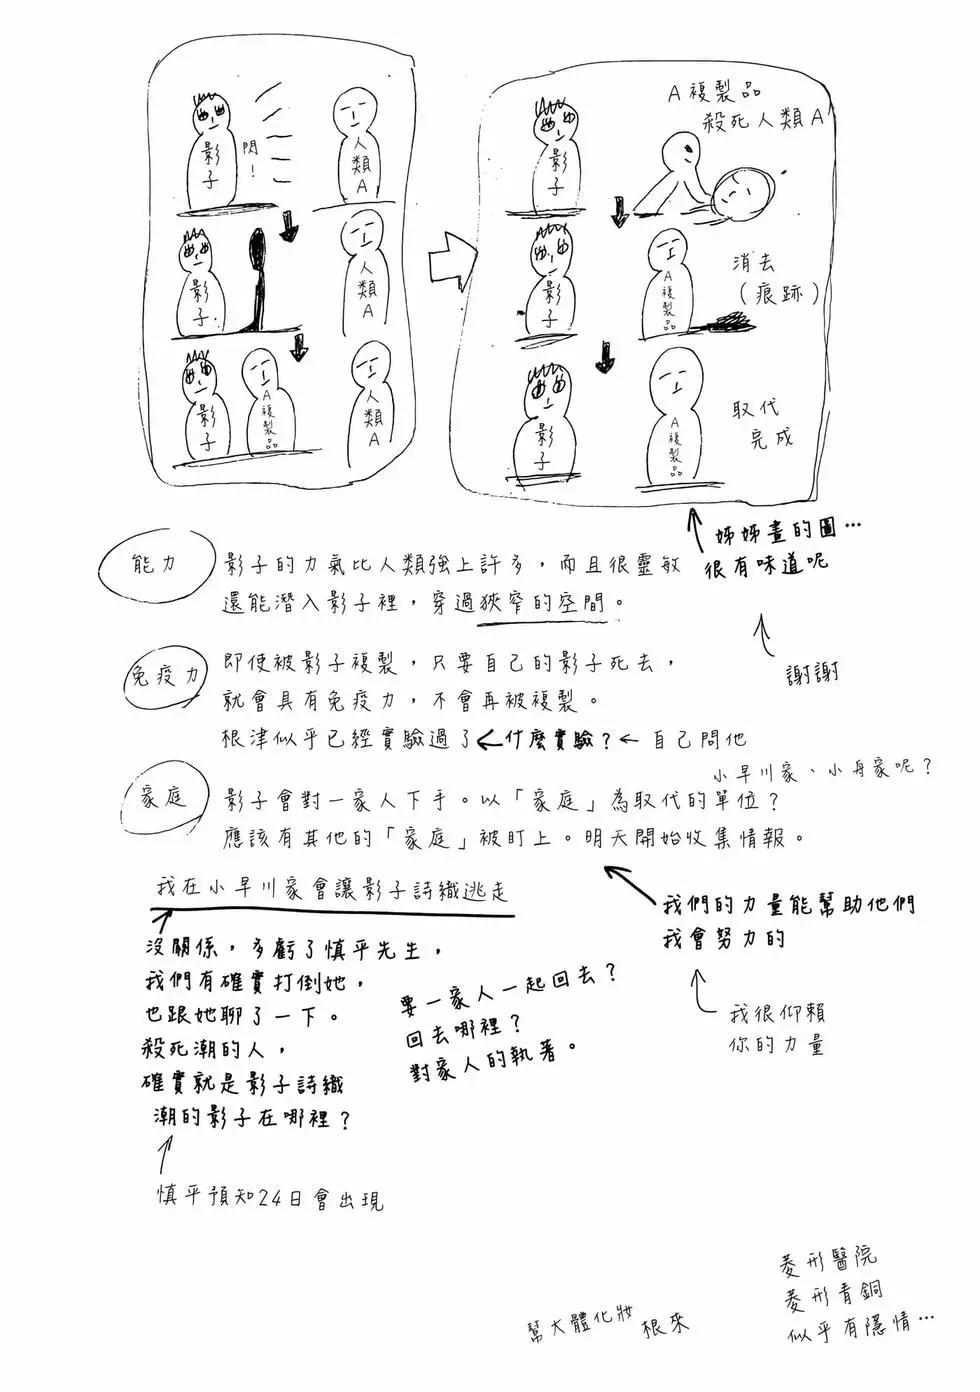 影子
閃！
人類A
影子
人類A
影子
A複製品
人類A
A複製品
殺死人類A
影子
影子
A複製品
消去
（痕跡）
影子
A複製品
取代
完成
姊姊畫的圖…
很有味道呢
謝謝
能力
影子的力氣比人類強上許多，而且很靈敏
還能潛入影子裡，穿過狹窄的空間。
免疫力
即使被影子複製，只要自己的影子死去，
就會具有免疫力，不會再被複製。
根津似乎已經實驗過了←什麼實驗？←自己問他
小早川家、小舟家呢？
家庭
影子會對一家人下手。以「家庭」為取代的單位？
應該有其他的「家庭」被盯上。明天開始收集情報。
我們的力量能幫助他們
我會努力的
我很仰賴
你的力量
我在小早川家會讓影子詩織逃走
沒關係，多虧了慎平先生，
我們有確實打倒她，
也跟她聊了一下。
殺死潮的人，
確實就是影子詩織
潮的影子在哪裡？
要一家人一起回去？
回去哪裡？
對家人的執著。
慎平預知24日會出現
幫大體化妝
根來
菱形醫院
菱形青銅
似乎有隱情…